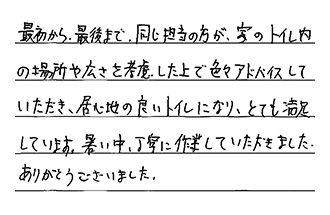 最初から最後まで、同じ担当の方が、家のトイレ内
の場所や広さを考慮した上で色々アドバイスして
いただき、居心地の良いトイレになり、とても満足
しています。暑い中、丁寧に作業していただきました。
ありがとうございました。